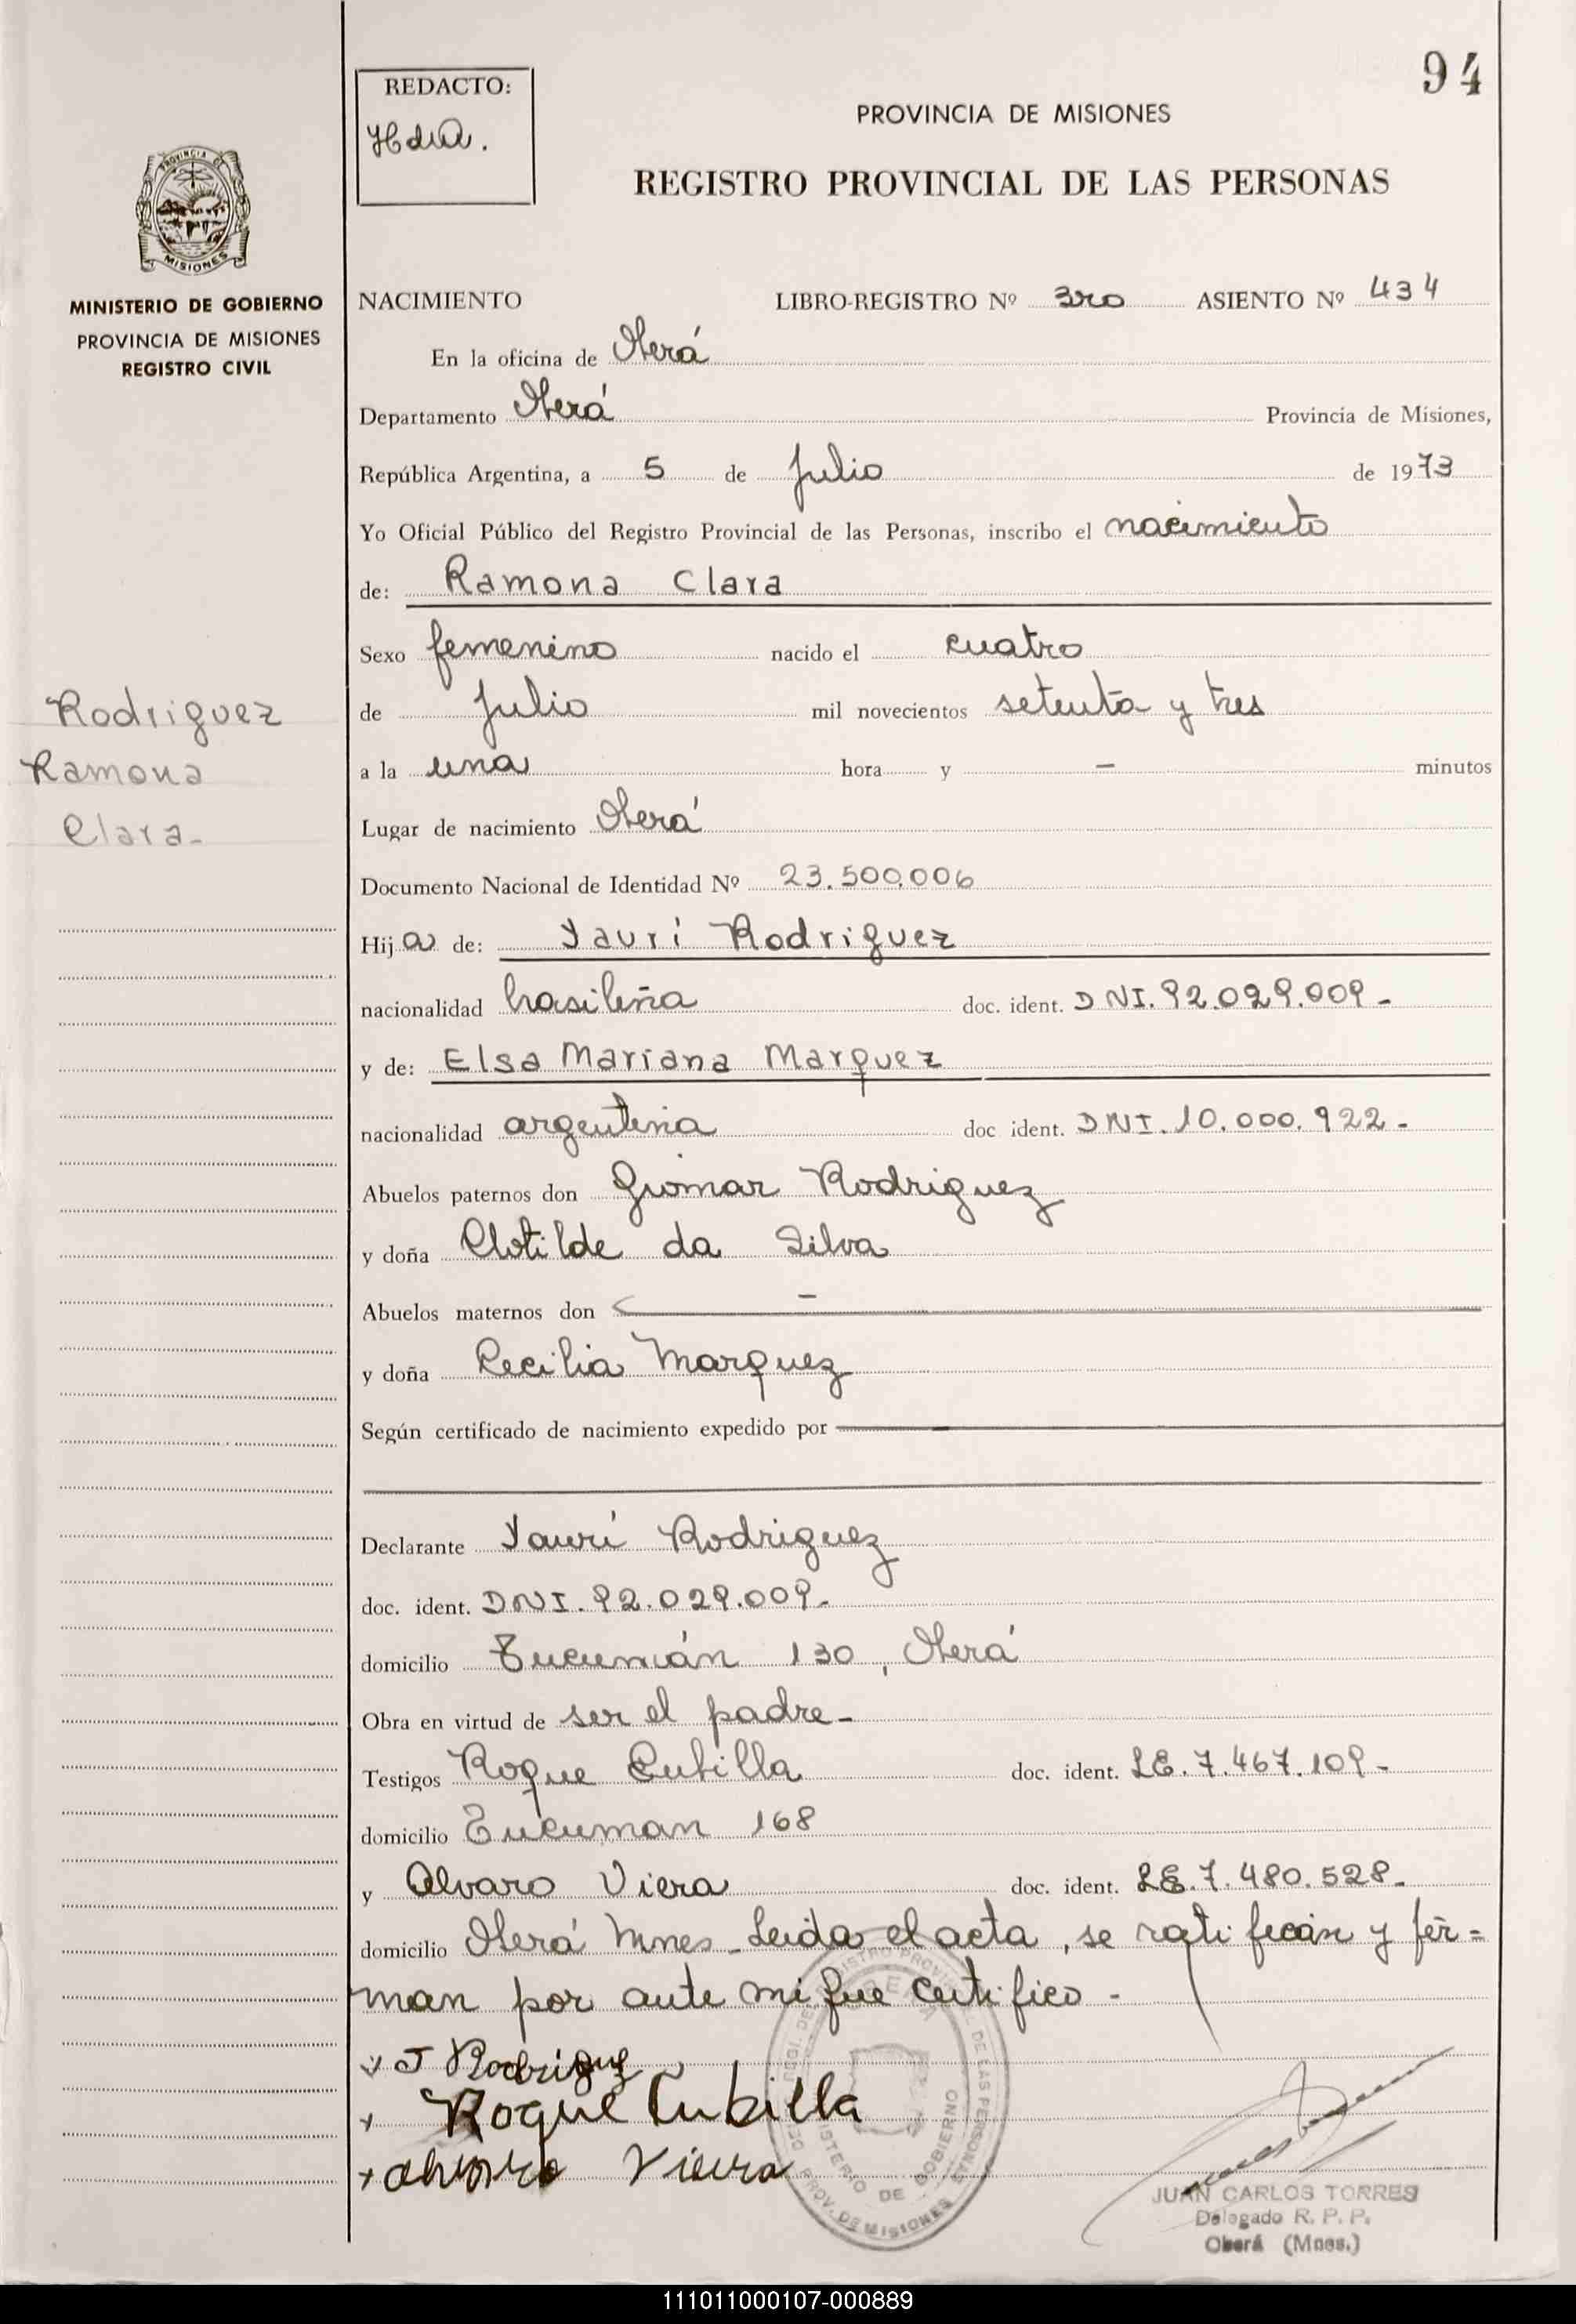 94
REDACTO:
PROVINCIA DE MISIONES
REGISTRO PROVINCIAL DE LAS PERSONAS
PROVINCIA DE
MISIONES
MINISTERIO DE GOBIERNO
PROVINCIA DE MISIONES
REGISTRO CIVIL
NACIMIENTO LIBRO-REGISTRO Nº 3ro ASIENTO Nº 434
En la oficina de Oberá
Departamento Oberá Provincia de Misiones,
República Argentina, a 5 de Julio de 1973
Yo Oficial Público del Registro Provincial de las Personas, inscribo el nacimiento
de: Ramona Clara
Sexo femenino nacido el cuatro
de Julio mil novecientos setenta y tres
a la una hora y — minutos
Lugar de nacimiento Oberá
Documento Nacional de Identidad Nº 23.500.006
Rodriguez
Ramona
Clara-
Hija de: Yauri Rodriguez
nacionalidad brasileña doc. ident. DNI. 92.029.009-
y de: Elsa Mariana Marquez
nacionalidad argentina doc ident. DNI. 10.000.922-
Abuelos paternos don Rodriguez
y doña Clotilde da Silva
Abuelos maternos don —
y doña Cecilia Marquez
Según certificado de nacimiento expedido por
Declarante Yauri Rodriguez
doc. ident. DNI. 92.029.009-
domicilio Tucumán 130, Oberá
Obra en virtud de ser el padre-
Testigos Roque Cubilla doc. ident. LE. 7.467.109-
domicilio Tucuman 168
y Alvaro Viera doc. ident. LE. 7.480.528-
domicilio Oberá Mnes- Leida el acta, se ratifican y fir=
man por ante mi que certifico-
J Rodriguez
Roque Cubilla
Alvaro Viera
MINISTERIO DE GOBIERNO
PROV. DE MISIONES
JUAN CARLOS TORRES
Delegado R. P. P.
Oberá (Mnes.)
111011000107-000889